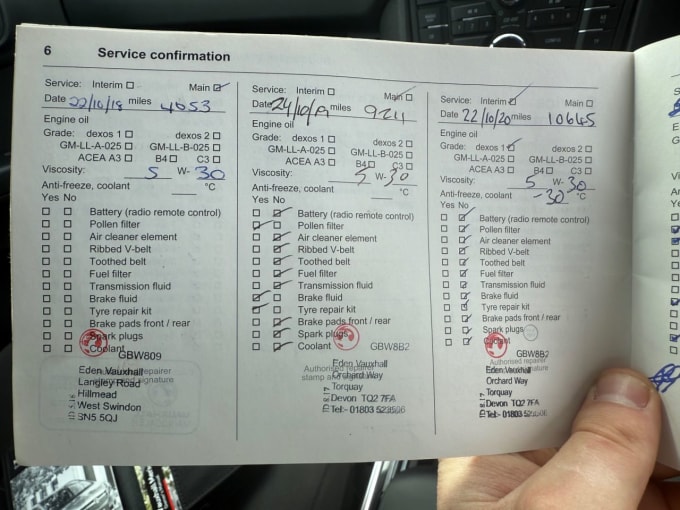 6 Service confirmation
Service: Interim Main
Date 22/10/18 miles 4653
Engine oil
Grade: dexos 1 dexos 2
GM-LL-A-025 GM-LL-B-025
ACEA A3 B4 C3
Viscosity: 5 W- 30
Anti-freeze, coolant °C
Yes No
Battery (radio remote control)
Pollen filter
Air cleaner element
Ribbed V-belt
Toothed belt
Fuel filter
Transmission fluid
Brake fluid
Tyre repair kit
Brake pads front / rear
Spark plugs
Coolant
GBW809
Eden Vauxhall
Langley Road
Hillmead
West Swindon
SN5 5QJ
Service: Interim Main
Date 24/10/19 miles 9211
Engine oil
Grade: dexos 1 dexos 2
GM-LL-A-025 GM-LL-B-025
ACEA A3 B4 C3
Viscosity: 5 W- 30
Anti-freeze, coolant °C
Yes No
Battery (radio remote control)
Pollen filter
Air cleaner element
Ribbed V-belt
Toothed belt
Fuel filter
Transmission fluid
Brake fluid
Tyre repair kit
Brake pads front / rear
Spark plugs
Coolant GBW8B2
Authorised repairer
stamp and signature
Eden Vauxhall
Orchard Way
Torquay
Devon TQ2 7FA
Tel:- 01803
Service: Interim Main
Date 22/10/20 miles 10645
Engine oil
Grade: dexos 1 dexos 2
GM-LL-A-025 GM-LL-B-025
ACEA A3 B4 C3
Viscosity: 5 W- 30
Anti-freeze, coolant -30 °C
Yes No
Battery (radio remote control)
Pollen filter
Air cleaner element
Ribbed V-belt
Toothed belt
Fuel filter
Transmission fluid
Brake fluid
Tyre repair kit
Brake pads front / rear
Spark plugs
Coolant
GBW8B2
Authorised repairer
Eden Vauxhall
Orchard Way
Torquay
Devon TQ2 7FA
Tel:- 01803